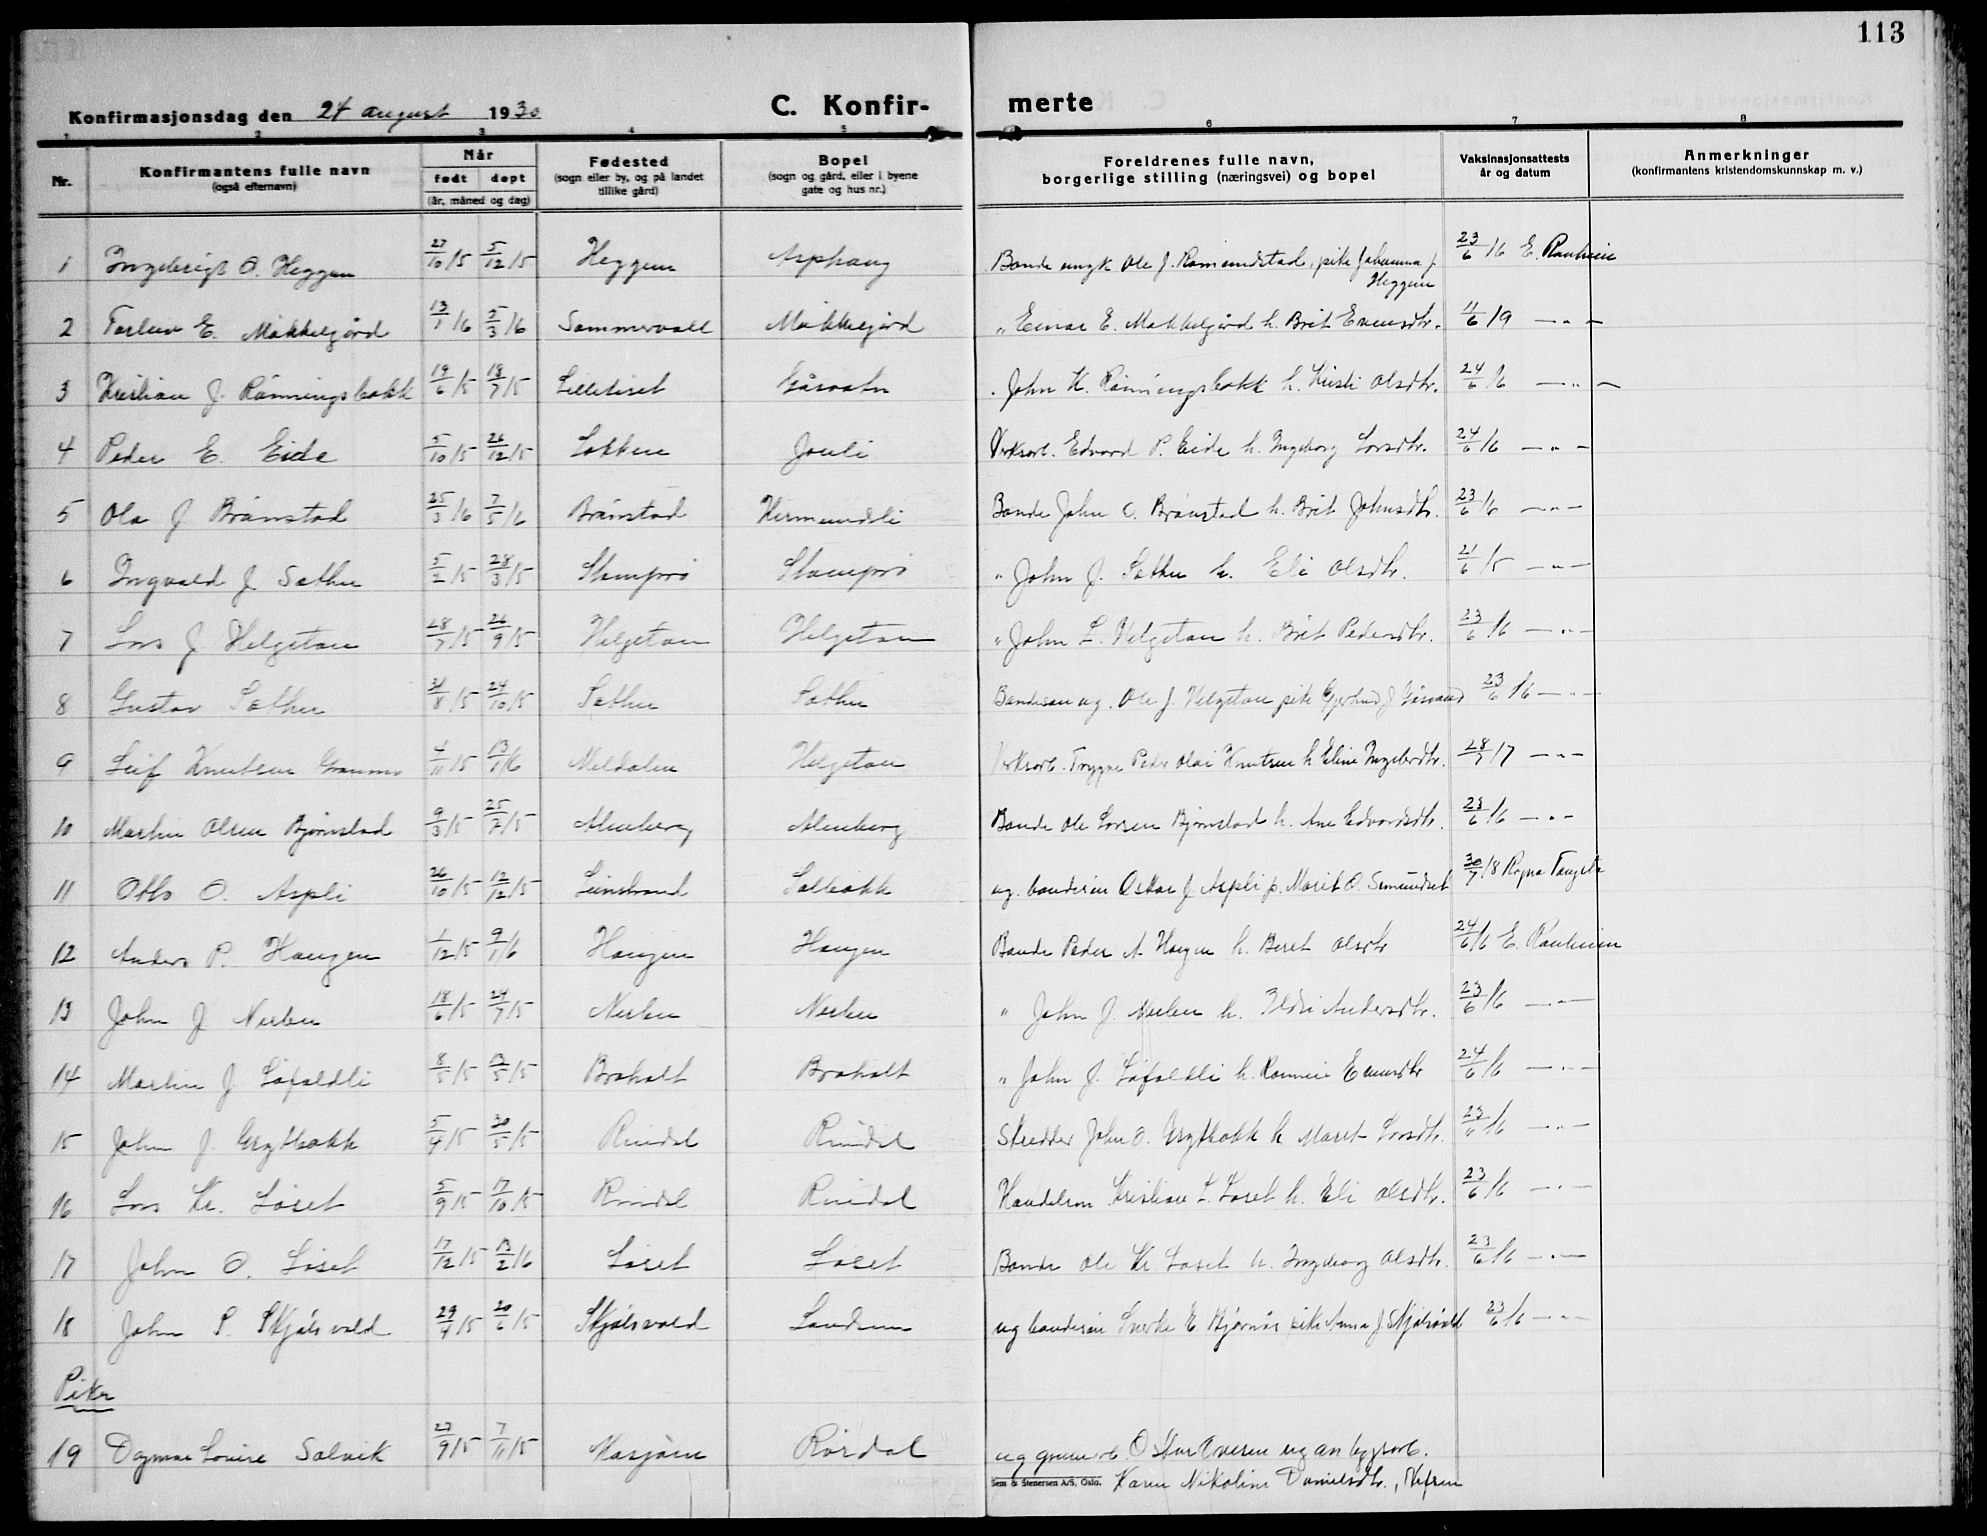 113
Konfirmasjonsdag den 24 august 1930
C. Konfir-
merte
1 2 3 4 5 6 7 8
Nr.
Konfirmantens fulle navn
(også efternavn)
Når
født døpt
(år, måned og dag)
Fødested
(sogn eller by, og på landet
tillike gård)
Bopel
(sogn og gård, eller i byene
gate og hus nr.)
Foreldrenes fulle navn,
borgerlige stilling (næringsvei) og bopel
Vaksinasjonsattests
år og datum
Anmerkninger
(konfirmantens kristendomskunnskap m. v.)
1 Ingebrigt O. Heggem 27/10 15 5/12 15 Heggem Asphaug Bonde ungk Ole J. Romundstad, pike Johanna J. 23/6 16 E. Rauheim
Heggem
2 E. Mokkelgård 13/1 16 5/3 16 Sommervold Mokkelgård " Einar E. Mokkelgård h. Brit Evensdtr. 11/6 19 - " -
3 Kristian J. Rønningsbakk 19/6 15 18/7 15 Lilletiset Gåsvatn John K. Rønningsbakk h. Kristi Olsdtr. 24/6 16 - " -
4 Peder E. Eide 5/10 15 26/12 15 Løkken Jouli Verksarb. Edvard P. Eide h. Ingeborg Larsdtr. 24/6 16 - " -
5 Ola J Brønstad 25/3 16 7/5 16 Brønstad Hermundli Bonde John O. Brønstad h. Brit Johnsdtr. 23/6 16 - " -
6 Ingvald J Sæther 5/2 15 28/3 15 Stomprø Stomprø " John J. Sæther h. Eli Olsdtr. 21/6 15 - " -
7 Lars J Helgetun 28/7 15 26/9 15 Helgetun Helgetun " John L. Helgetun h. Brit Pedersdtr. 23/6 16 - " -
8 Gustav Sæther 31/8 15 24/10 15 Sæther Sæther Bondesøn ug. Ole J. Helgetun pike Gjertrud J Gåsvand 23/6 16 - " -
9 Leif Knutsen Gramme 4/11 15 13/1 16 Meldalen Helgetun Verksarb. Trygve Peder Olai Knutsen h Eline Ingebrdtr. 28/7 17 - " -
10 Martin Olsen Bjørnstad 9/3 15 25/7 15 Almberg Almberg Bonde Ole Larsen Bjørnstad h. Ane Edvardsdtr. 23/6 16 - " -
11 Otto O. Aspli 26/10 15 12/12 15 Leinstrand Solbakk ug. bondesøn Oskar J. Aspli p. Marit O. Semundset 30/7 18 Ragna Tangstu
12 Anders P. Haugen 1/12 15 9/1 16 Haugen Haugen Bonde Peder A Haugen h. Beret Olsdtr 24/6 16 E. Rauheim
13 John J Nerbu 18/6 15 24/7 15 Nerbu Nerbu " John J. Nerbu h. Ildri Andersdtr. 23/6 16 - " -
14 Martin J Løfaldli 8/5 15 13/5 15 Braholt Braholt " John J. Løfaldli h. Ronnei Evensdtr 24/6 16 - " -
15 John J. Grytbakk 5/4 15 30/5 15 Rindal Rindal Skredder John O. Grytbakk h Marit Larsdtr. 23/6 16 - " -
16 Lars Kr. Løset 5/9 15 17/10 15 Rindal Rindal Handelsm Kristian L. Løset h. Eli Olsdtr. 23/6 16 - " -
17 John O. Løset 17/12 15 13/2 16 Løset Løset Bonde Ole Kr. Løset h. Ingeborg Olsdtr. 23/6 16 - " -
18 John S. Skjølsvold 29/4 15 20/6 15 Skjølsvold Landsem ug bondesøn Sverke E. Bjørnås pike Anna J Skjølsvold 23/6 16 - " -
Piker
19 Dagmar Lovise Solvik 27/9 15 7/11 15 Mosjøen Rørdal ug grubearb. Oskar Iversen ug anleggsarb.
Sem & Stenersen A/S, Oslo. Karen Nikoline Danielsdtr., Vefsen